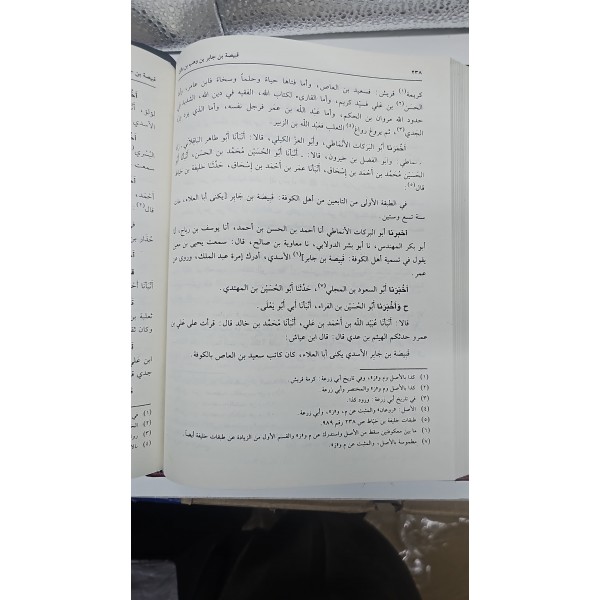 ٢٣٨
قبيصة بن جابر بن وهب بن
كريمة(١) قريش: فسعيد بن العاص، وأما فتاها حياء وحلماً وسخاء فابن عامر، وأما
الحسن(٢) بن علي فسيّد كريم، وأما القارىء لكتاب الله، الفقيه في دين الله، الشديد في
حدود الله مروان بن الحكم، وأما عبد الله بن عمر فرجل نفسه، وأما الذي يرد
الجدي(٣)، ثم يروغ رواغ(٤) الثعلب فعبْد الله بن الزبير.
أَخْبَرَنا أبو البركات الأنماطي، وأبو العزّ الكيلي، قالا: أَنْبَأنَا أبو طاهر الباقلاني، زاد
الأنماطي وأبو الفضل بن خيرون، قالا: ـ أَنْبَأنَا أبُو الحُسَيْن مُحَمَّد بن الحسن، أنْبَأنَا أبُو
الحُسَيْن مُحَمَّد بن أحْمَد بن إسْحَاق، أنْبَأنَا عمر بن أحْمَد بن إسْحَاق، حَدَّثَنَا خليفة بن خياط
قال(٥):
في الطبقة الأولى من التابعين من أهل الكوفة: قَبيصَة بن جابر [يكنى أبا العلاء، مات
سنة تسع وستين.
أخبرنا أبو البركات الأنماطي أنا أحمد بن الحسن بن أحمد، أنا يوسف بن رباح، أنا
أبو بكر المهندس، نا أبو بشر الدولابي، نا معاوية بن صالح، قال: سمعت يحيى بن معين
يقول في تسمية أهل الكوفة: قَبيصَة بن جابر](٦) الأسدي، أدرك إمرة عبد الملك، وروى عن
عمر.
أَخْبَرَنا أبُو السعود بن المجلي(٧)، حَدَّثَنَا أبُو الحُسَيْن بن المهتدي.
ح وَأخْبَرَنا أبُو الحُسَيْن بن الفراء، أنْبَأنَا أبي أبُو يَعْلَى.
قالا: أنْبَأنَا عُبَيْد اللّه بن أحْمَد بن علي، أنْبَأنَا مُحَمَّد بن خالد قال: قرأت على عَلي بن
عمرو حدثكم الهيثم بن عدي قال: قال ابن عياش:
قَبيصَة بن جابر الأسدي يكنى أبا العلاء، كان كاتب سعيد بن العاص بالكوفة.
(١) كذا بالأصل وم و«ز»، وفي تاريخ أبي زرعة: كرمة قريش.
(٢) كذا بالأصل وم و«ز» والمختصر وأبي زرعة.
(٣) في تاريخ أبي زرعة: ورود كذا.
(٤) الأصل: «روغان» والمثبت عن م، و«ز»، وأبي زرعة.
(٥) طبقات خليفة بن خيّاط ص ٢٣٨ رقم ٩٨٩.
(٦) ما بين معكوفتين سقط من الأصل واستدرك عن م و«ز» والقسم الأول من الزيادة عن طبقات خليفة أيضاً.
(٧) مطموسة بالأصل، والمثبت عن م و«ز».